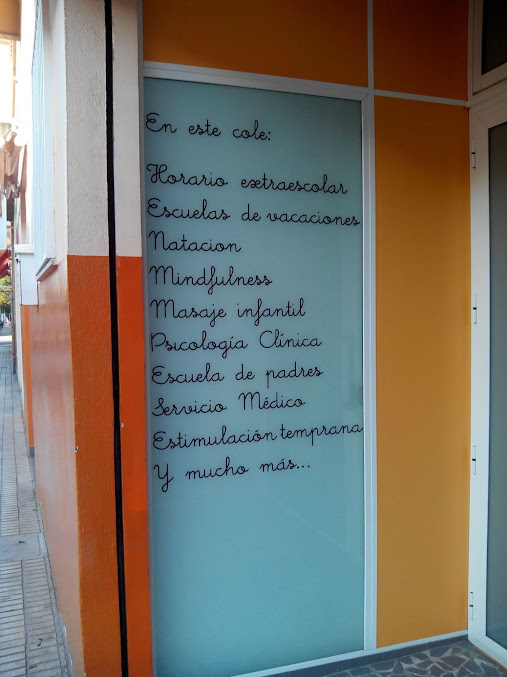 En este cole:
Horario extraescolar
Escuelas de vacaciones
Natacion
Mindfulness
Masaje infantil
Psicología Clínica
Escuela de padres
Servicio Médico
Estimulación temprana
Y mucho más...